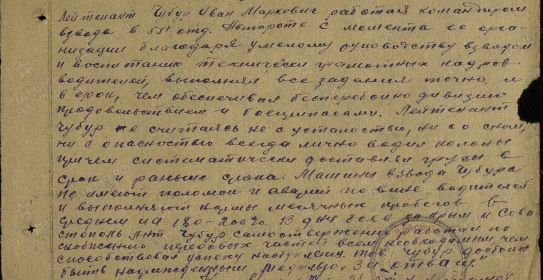 Лейтенант Чубур Иван Маркович работая командиром
взвода в 551 отд. Автороте с момента ее орга-
низации благодаря умелому руководству взводом
и воспитанию технически грамотных кадров
водителей, выполнял все задания точно и
в срок, чем обеспечивал бесперебойно дивизию
продовольствием и боеприпасами. Лейтенант
Чубур не считаясь не с усталостью, ни со сном,
ни с опасностью всегда лично водил колоны
причем систематически доставлял грузы в
срок и раньше срока. Машины взвода Чубура
не имеют поломок и аварий по вине водителей
и выполняют нормы месячных пробегов в
среднем на 180-200%. В дни боев за Крым и Сева
стополь л-нт Чубур самоотверженно работал по
снабжению передовых частей всем необходимым чем
способствовал успеху наступления. тов. Чубур достоин
быть награжденным медалью "За отвагу"